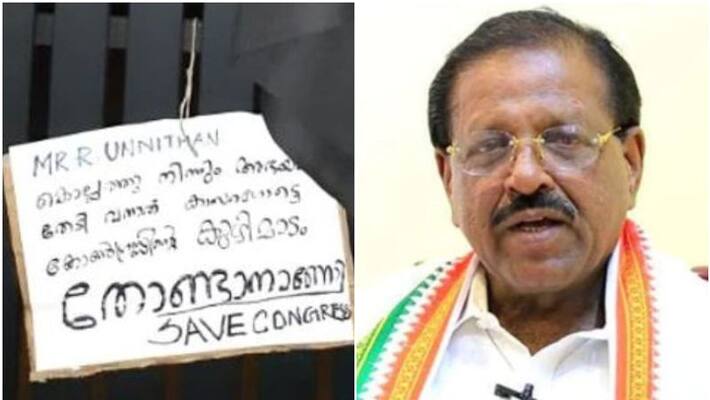 MR R. UNNITHAN
കൊല്ലത്തു നിന്നും അഭയം
തേടി വന്നത് കാസറഗോട്ടെ
കോൺഗ്രസ്സിന്റെ കുഴിമാടം
തോണ്ടാനാണോ
SAVE CONGRESS